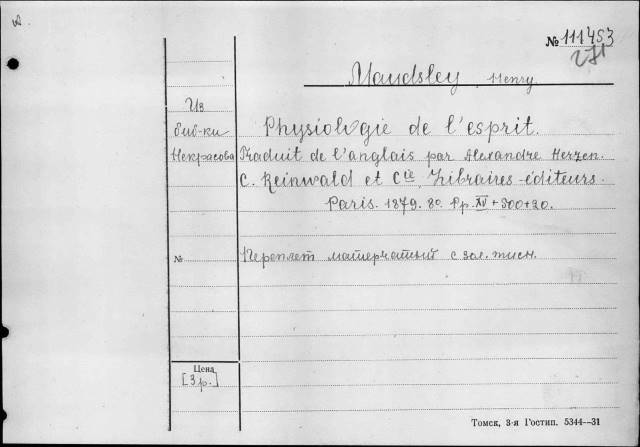 № 111453
271
Maudsley Henry.
Из
биб-ки
Некрасова
Physiologie de l'esprit.
Traduit de l'anglais par Alexandre Herzen.
C. Reinwald et Cie, Libraires-éditeurs.
Paris. 1879. 8o. Pp. XV + 500 + 20.
№
Переплет матерчатый с зол. тисн.
Цена
[3 р.]
Томск, 3-я Гостип. 5344—31